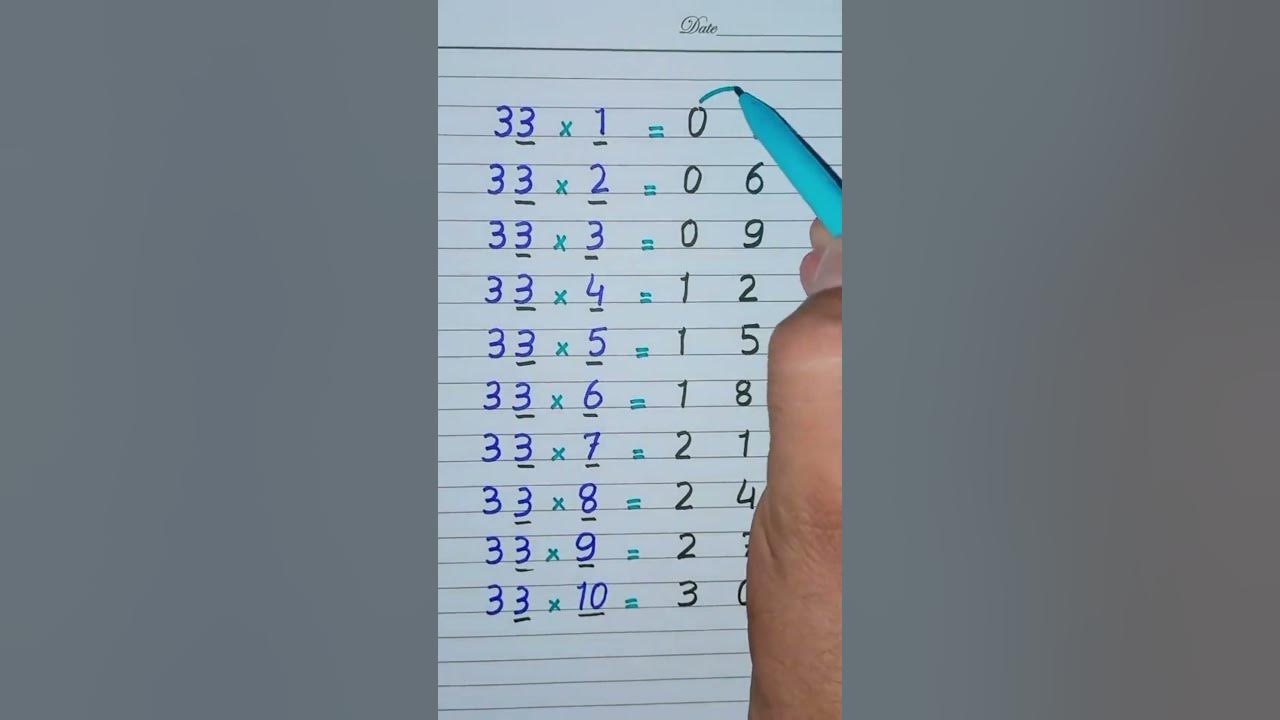 Date
33 × 1 = 0
33 × 2 = 0 6
33 × 3 = 0 9
33 × 4 = 1 2
33 × 5 = 1 5
33 × 6 = 1 8
33 × 7 = 2 1
33 × 8 = 2 4
33 × 9 = 2
33 × 10 = 3